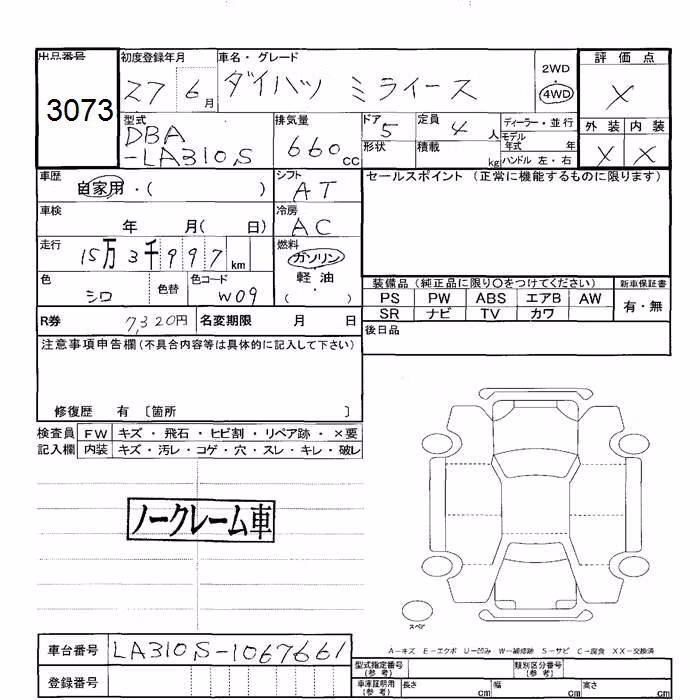 出品番号
3073
初度登録年月
27 6月
車名・グレード
ダイハツ ミライース
2WD
・
4WD
評価点
X
外装 内装
X X
型式
DBA
-LA310S
排気量
660cc
ドア
5
定員
4人
ディーラー・並行
モデル
年式 年
形状
積載 kg
ハンドル 左・右
車歴
自家用・( )
シフト
AT
セールスポイント (正常に機能するものに限ります)
車検
年 月( 日)
冷房
AC
走行
15万3千997km
燃料
ガソリン
軽油
( )
色
シロ
色替
色コード
W09
装備品 (純正品に限り〇をつけてください)
新車保証書
PS PW ABS エアB AW
SR ナビ TV カワ
有・無
R券 7,320円 名変期限 月 日
後日品
注意事項申告欄 (不具合内容等は具体的に記入して下さい)
修復歴 有 〔箇所 〕
検査員 FW キズ・飛石・ヒビ割・リペア跡・×要
記入欄 内装 キズ・汚レ・コゲ・穴・スレ・キレ・破レ
ノークレーム車
スペア
A-キズ E-エクボ U-凹み W-補修跡 S-サビ C-腐食 XX-交換済
車台番号 LA310S-1067661
登録番号
型式指定番号
(参考)
類別区分番号
(参考)
車庫証明用
(参考)
長さ cm 幅 cm 高さ cm